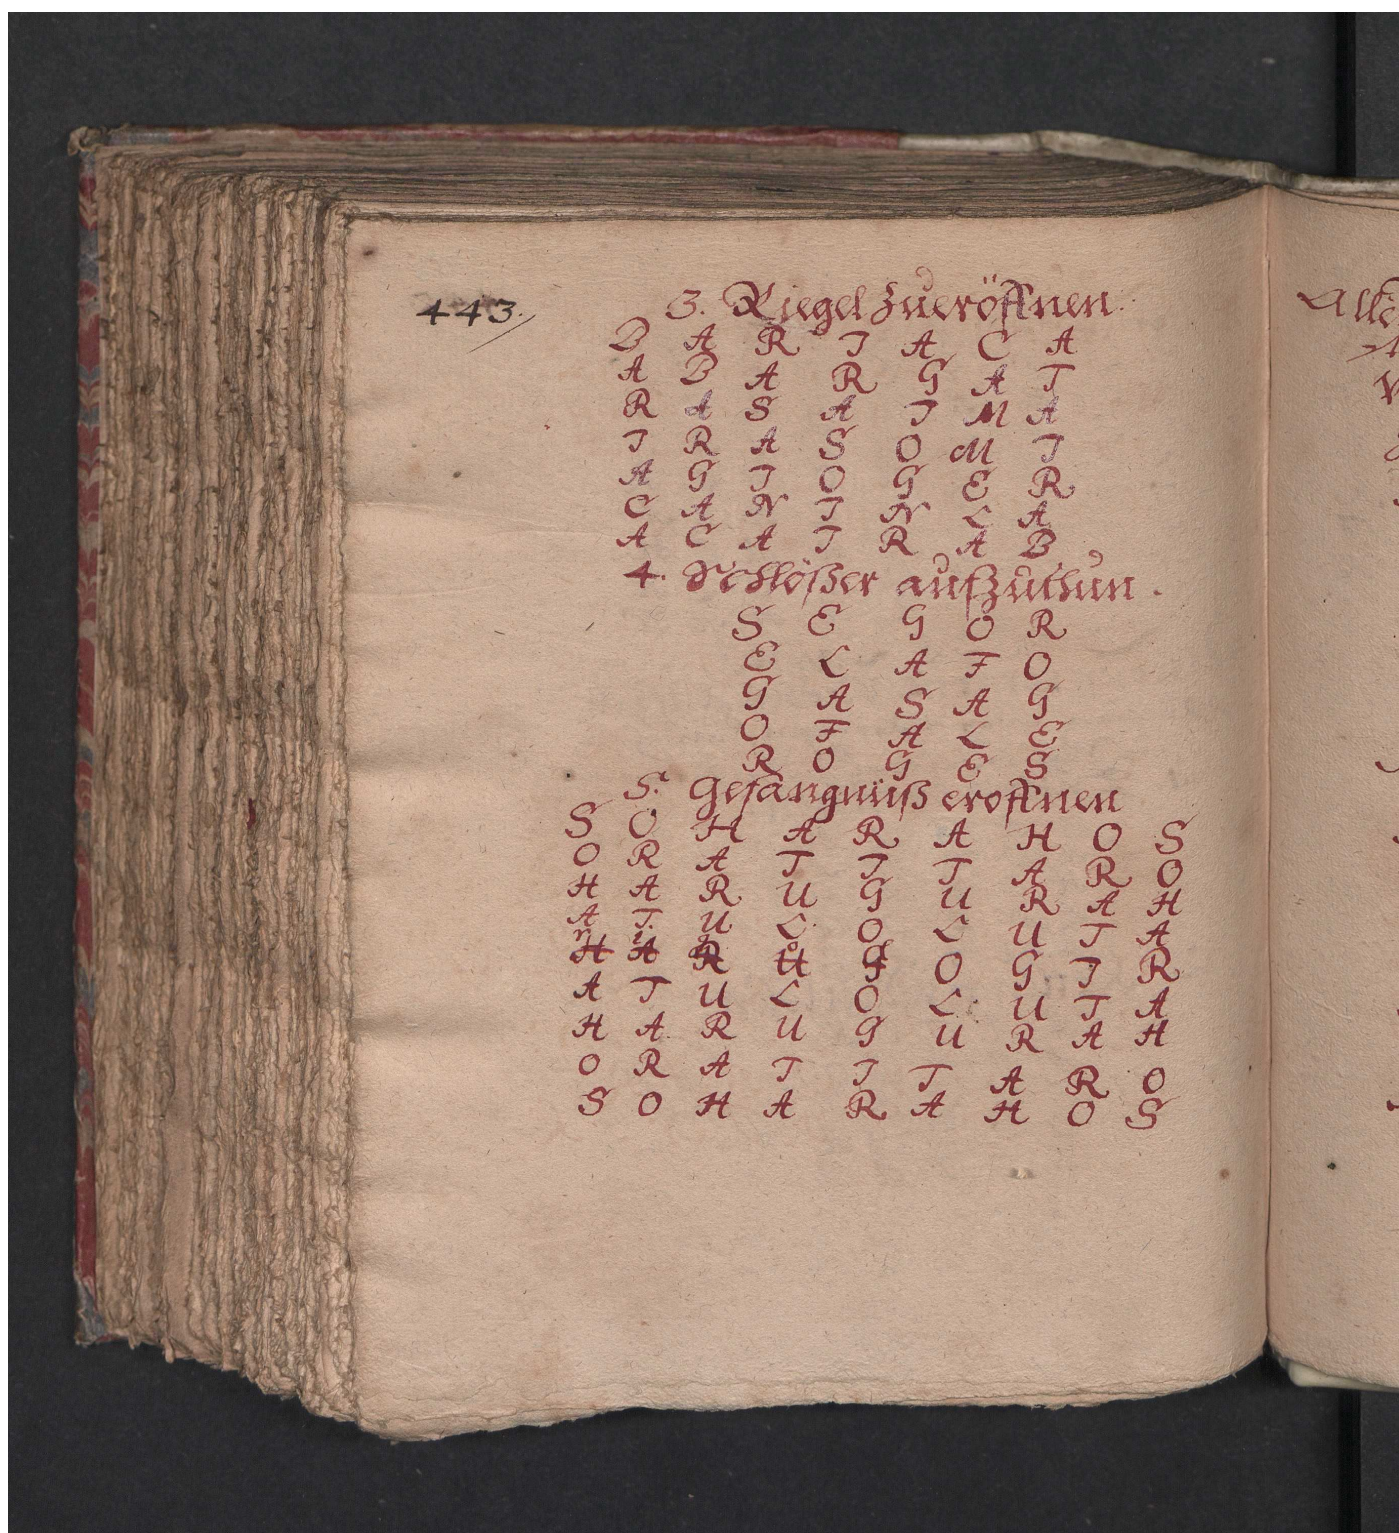 443.
3. Riegel zueröffnen.
B A R I A C A
A B A R G A T
R A S A I M A
I R A S O M I
A G I O G E R
C A N I N L A
A C A I R A B
4. Schlößer aufzuthun.
S E G O R
E L A F O
G A S A G
O F A L E
R O G E S
5. Gefängnüß eroffnen
S O H A R A H O S
O R A T I T A R O
H A R U G U R A H
A T U L O L U T A
O G I R
A T U L O L U T A
H A R U G U R A H
O R A T I T A R O
S O H A R A H O S